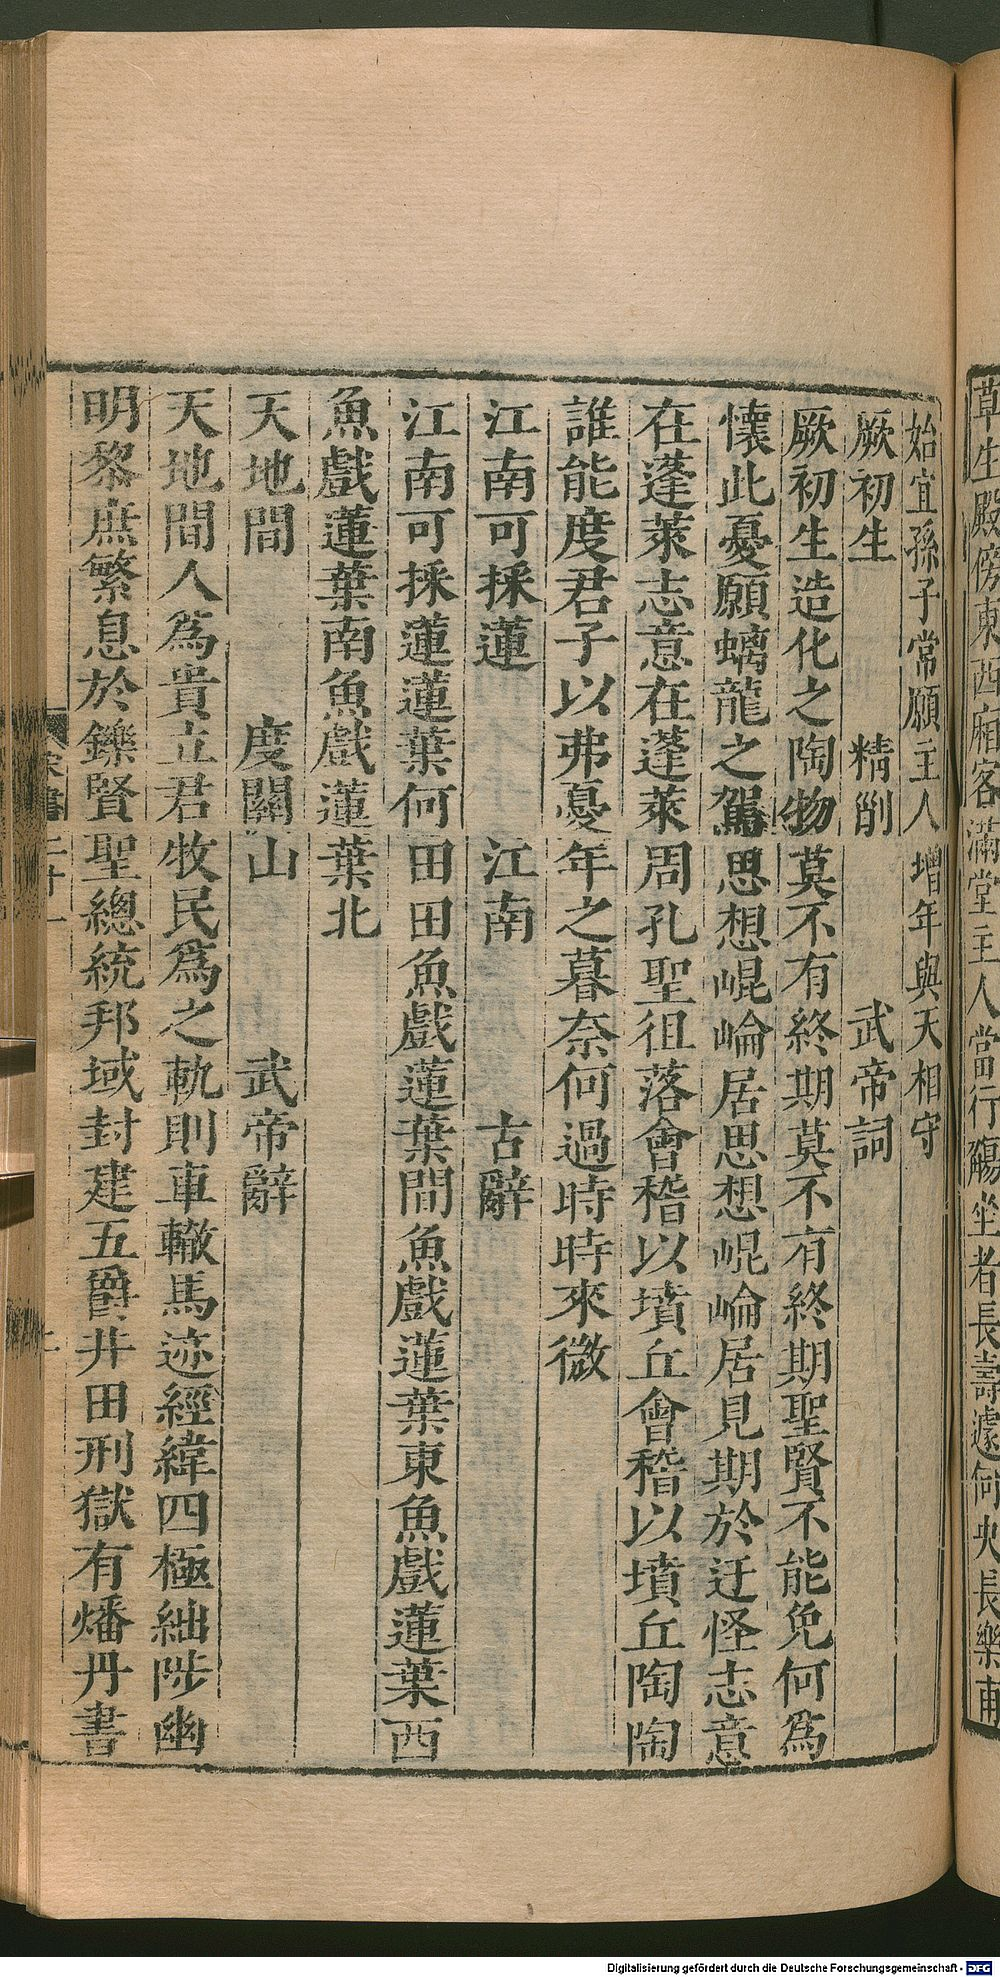 草生殿傍東西廂客滿堂主人當行觴坐者長壽遽何央長樂甫
始宜孫子常願主人增年與天相守
厥初生 精𠛴 武帝詞
厥初生造化之陶物莫不有終期莫不有終期聖賢不能免何爲
懷此憂願螭龍之駕思想崐崘居思想崐崘居見期於迂怪志意
在蓬萊志意在蓬萊周孔聖徂落會稽以墳丘會稽以墳丘陶陶
誰能度君子以弗憂年之暮奈何過時時來微
江南可採蓮 江南 古辭
江南可採蓮蓮葉何田田魚戲蓮葉間魚戲蓮葉東魚戲蓮葉西
魚戲蓮葉南魚戲蓮葉北
天地間 度關山 武帝辭
天地間人爲貴立君牧民爲之軌則車轍馬迹經緯四極絀陟幽
明黎庶繁息於鑠賢聖總統邦域封建五爵井田刑獄有燔丹書
宋書二十一
Digitalisierung gefördert durch die Deutsche Forschungsgemeinschaft - DFG